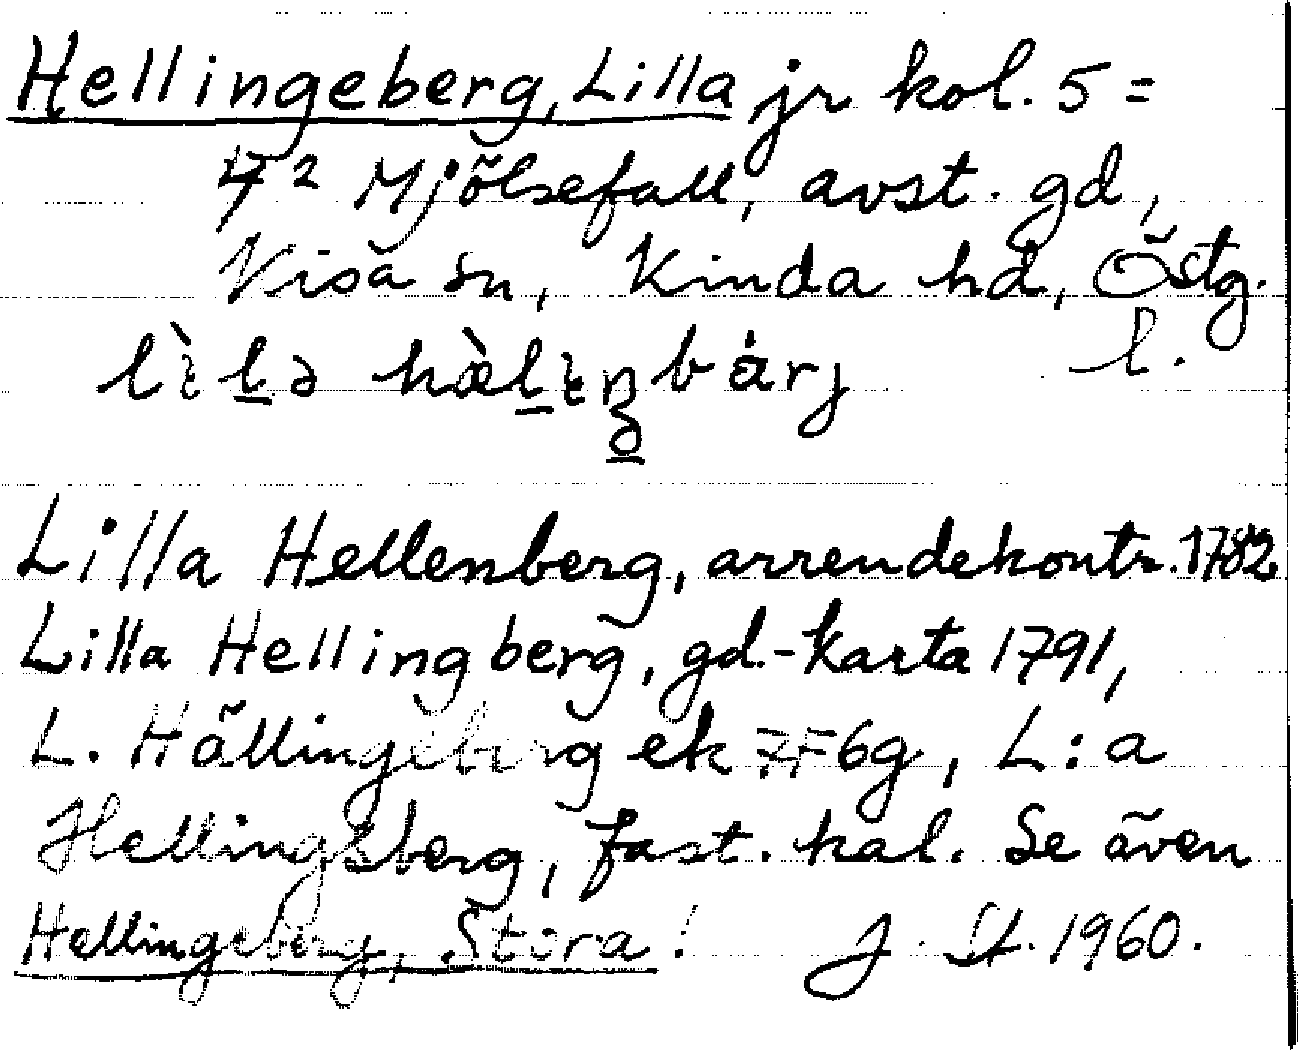 Hellingeberg, Lilla jr kol. 5 =
7² Mjölsefall, avst. gd,
Kisa sn, Kinda hd, Östg.
l.
Lilla Hellenberg, arrendekontr. 1782
Lilla Hellingberg, gd.-karta 1791,
L. Hällingeberg ek 7F6g, L:a
Hellingsberg, fast. kal. Se även
Hellingeberg, Stora! J. St. 1960.